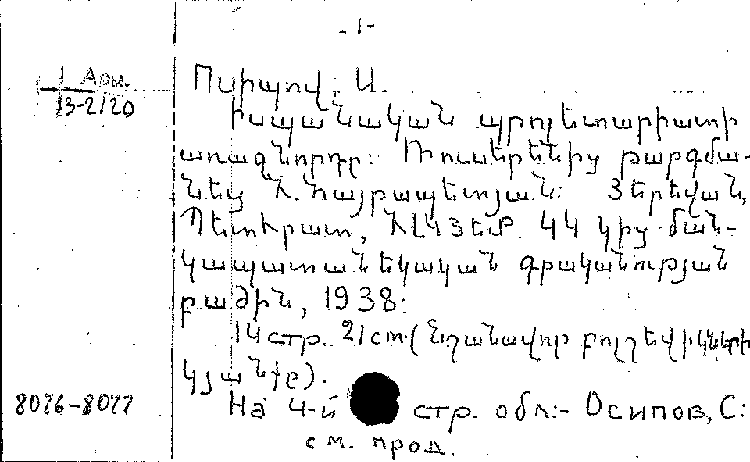 -1-
Арм.
13-2120
Օսիպով, Ս.
Իսպանական պրոլետարիատի
առաջնորդը: Ռուսերենից թարգմա-
նեց Հ. Հայրապետյան: Յերեվան,
Պետհրատ, ՀԼԿՅԵՄ ԿԿ կից ման-
կապատանեկական գրականության
բաժին, 1938:
14 стр. 21 cm (Նշանավոր բոլշեվիկների
կյանքը).
8076-8077
На 4-й стр. обл:- Осипов, С:
см. прод.